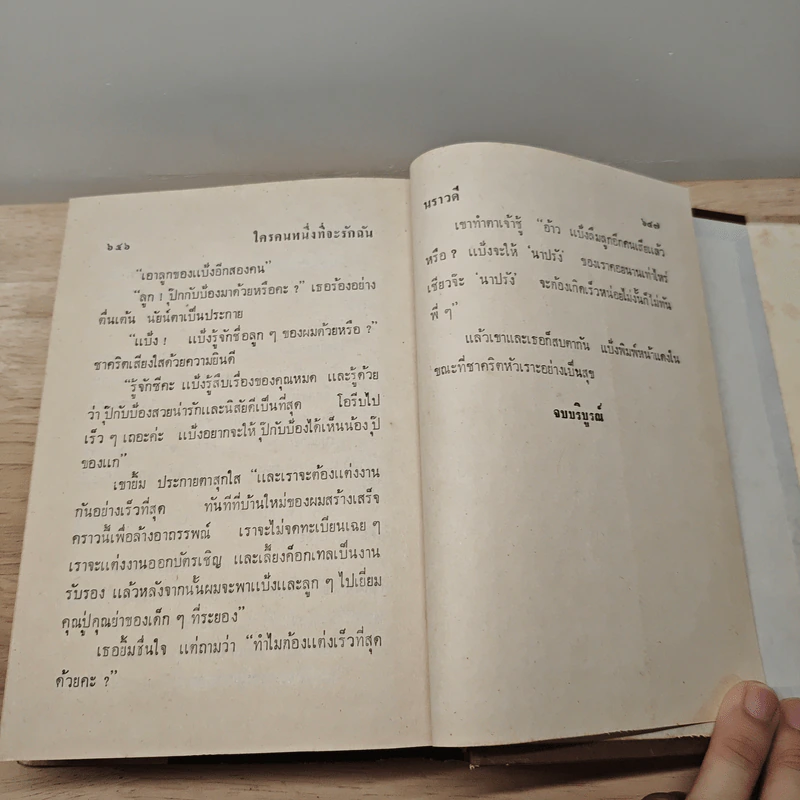 ๖๔๖ ใครคนหนึ่งที่จะรักฉัน
"เอาลูกของแบ้งอีกสองคน"
"ลูก ! ปุ๊กกับป้องมาด้วยหรือคะ ?" เธอร้องอย่าง
ตื่นเต้น นัยน์ตาเป็นประกาย
"แบ้ง ! แบ้งรู้จักชื่อลูก ๆ ของผมด้วยหรือ ?"
ชาคริตเสียงใสด้วยความยินดี
"รู้จักซีคะ แบ้งรู้สึบเรื่องของคุณหมด และรู้ด้วย
ว่า ปุ๊กกับป้องสวยน่ารักและนิสัยดีเป็นที่สุด โอรีบไป
เร็ว ๆ เถอะค่ะ แบ้งอยากจะให้ ปุ๊กกับป้องได้เห็นน้อง ปุ๊
ของแก"
เขายิ้ม ประกายตาสุกใส "และเราจะต้องแต่งงาน
กันอย่างเร็วที่สุด ทันทีที่บ้านใหม่ของผมสร้างเสร็จ
คราวนี้เพื่อล้างอาถรรพณ์ เราจะไม่จดทะเบียนเฉย ๆ
เราจะแต่งงานออกบัตรเชิญ และเลี้ยงค็อกเทลเป็นงาน
รับรอง แล้วหลังจากนั้นผมจะพาแบ้งและลูก ๆ ไปเยี่ยม
คุณปู่คุณย่าของเด็ก ๆ ที่ระยอง"
เธอยิ้มชื่นใจ แต่ถามว่า "ทำไมต้องแต่งเร็วที่สุด
ด้วยคะ ?"
นราวดี ๖๔๗
เขาทำตาเจ้าชู้ "อ้าว แบ้งลืมลูกอีกคนเธอแล้ว
หรือ ? แบ้งจะให้ 'นาปรัง' ของเราคอยนานเท่าไหร่
เชียวจ๊ะ 'นาปรัง' จะต้องเกิดเร็วหน่อยไม่งั้นก็ไม่ทัน
พี่ ๆ"
แล้วเขาและเธอก็สบตากัน แบ้งพิมพ์หน้าแดงใน
ขณะที่ชาคริตหัวเราะอย่างเป็นสุข
จบบริบูรณ์